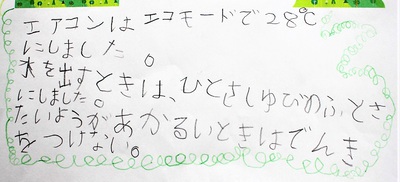 エアコンはエコモードで28℃
にしました。
水を出すときは、ひとさしゆびのふとさ
にしました。
たいようがあかるいときはでんき
をつけない。